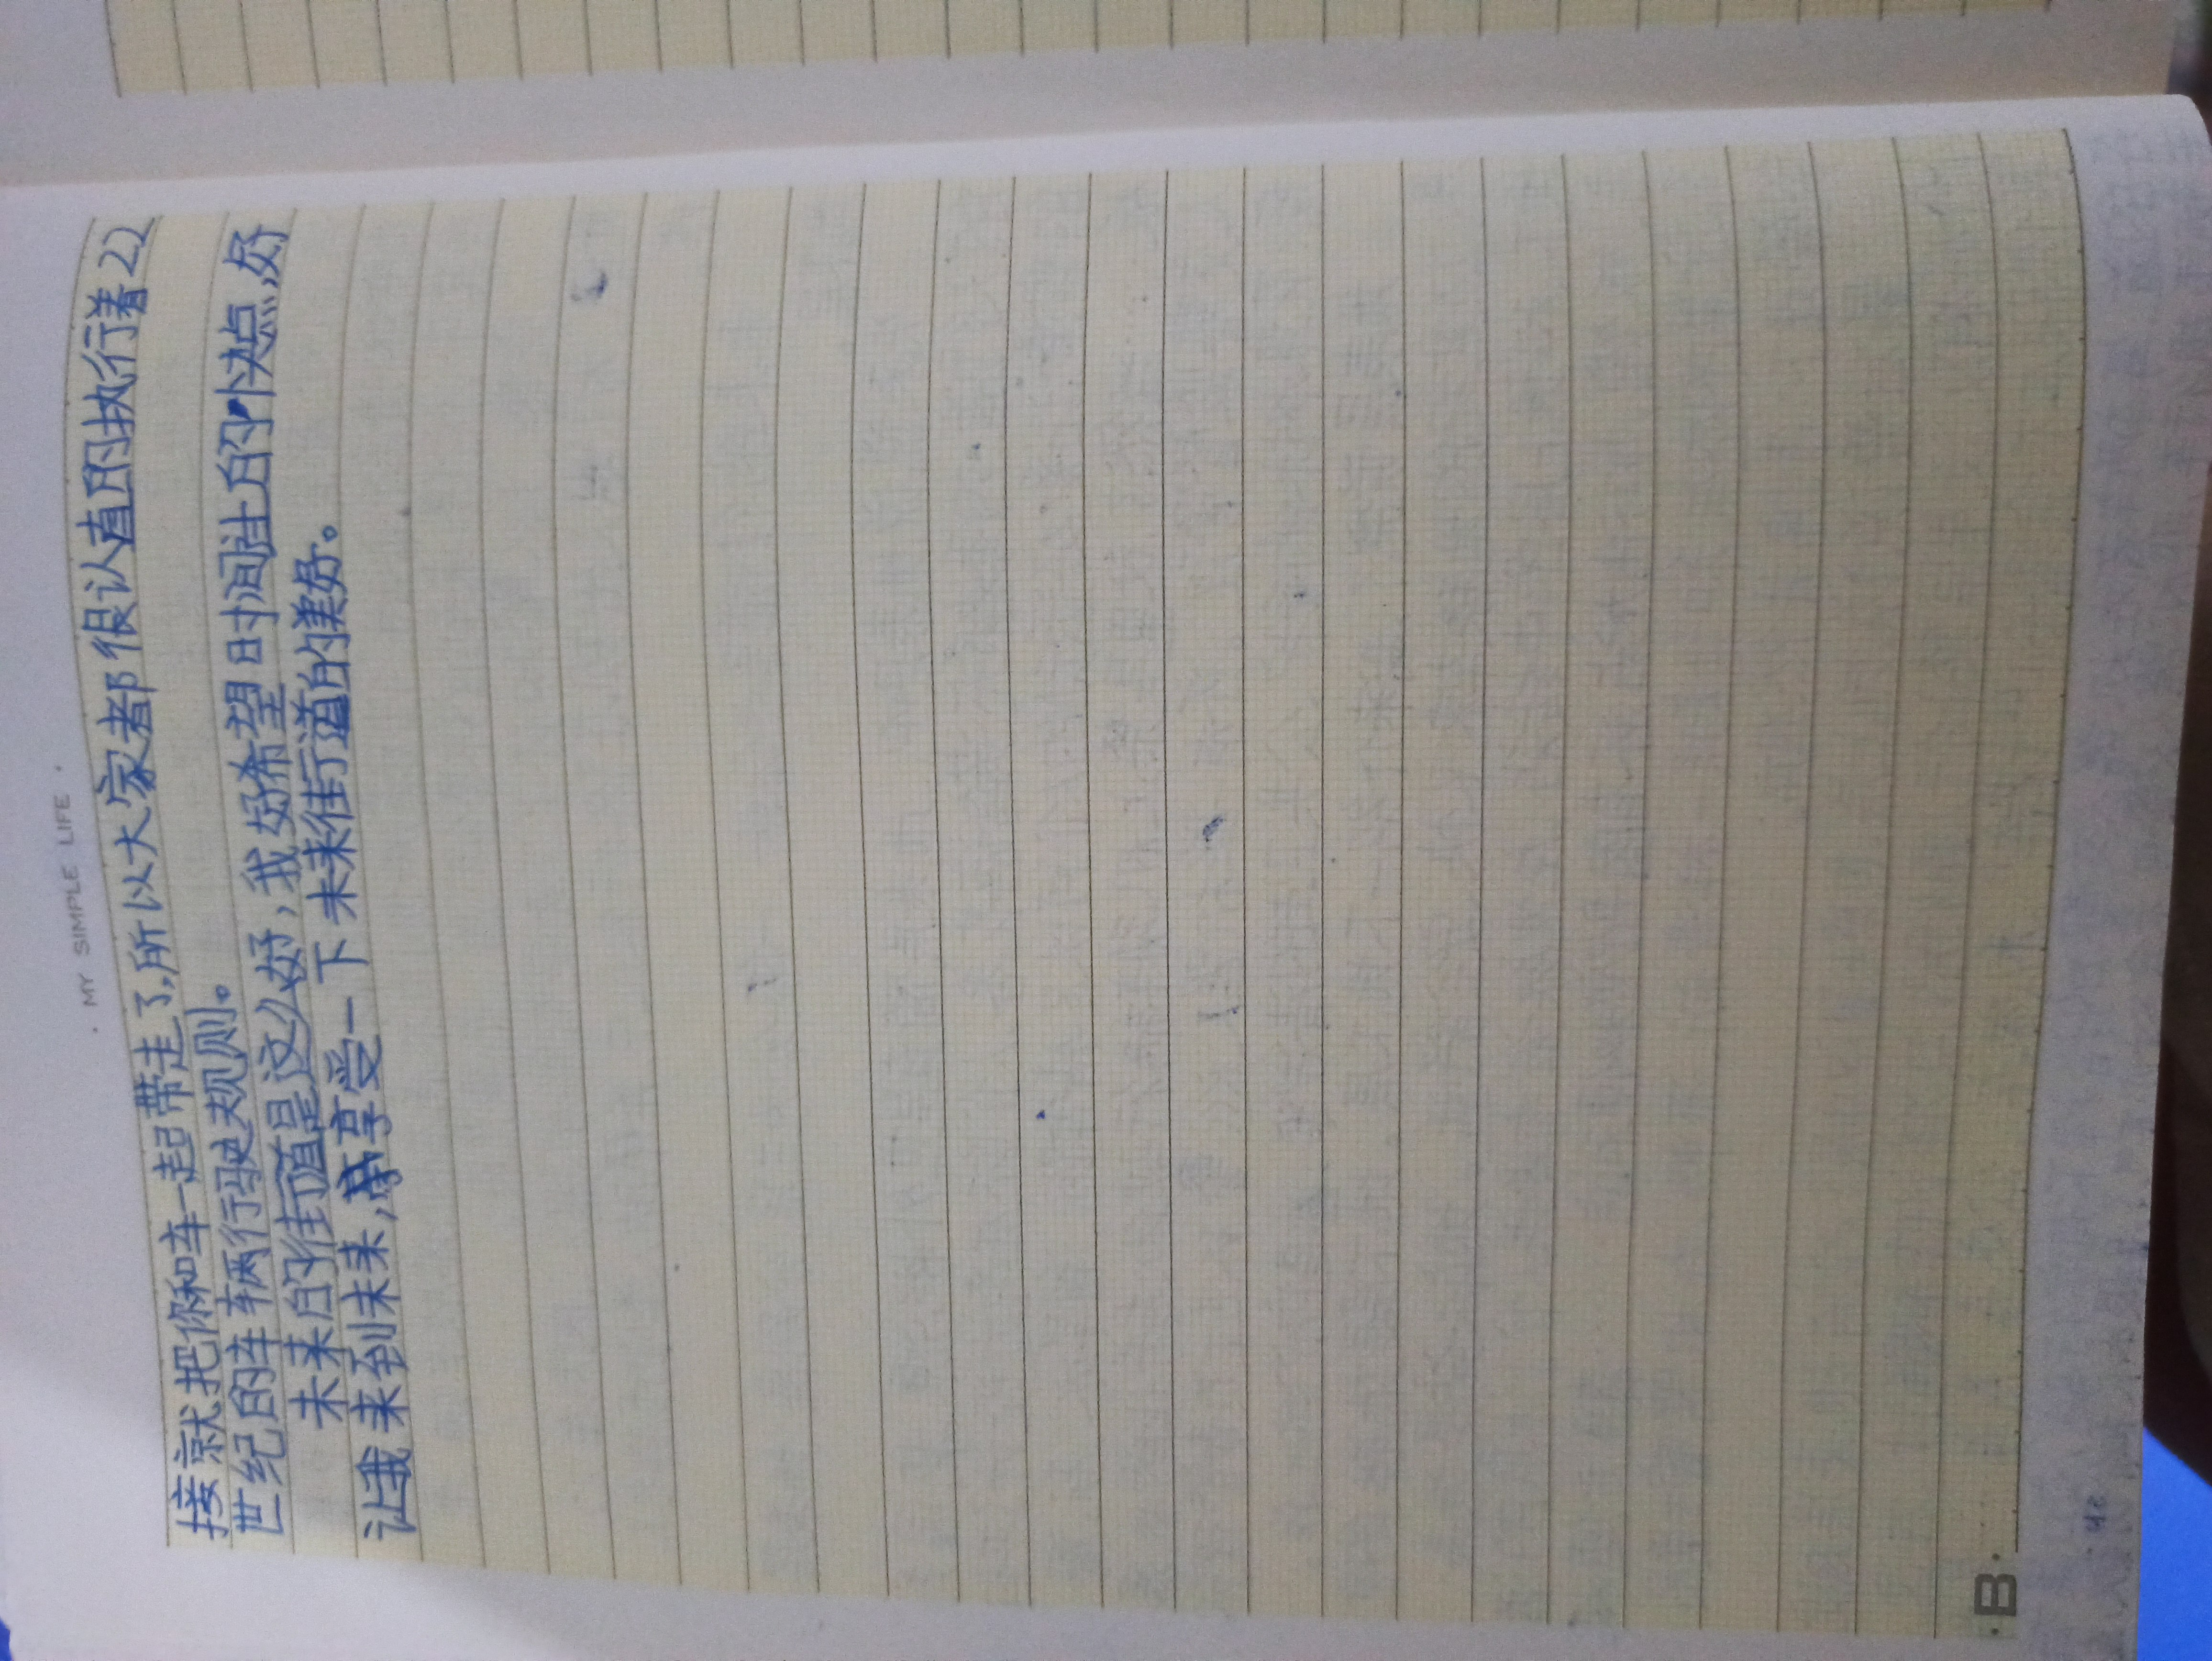 · MY SIMPLE LIFE ·
接就把你和车一起带走了,所以大家都很认真的执行着22
世纪的车辆行驶规则。
未来的街道是这么好,我好希望时间过的快点,好
让我来到未来,享受一下未来街道的美好。
·B·